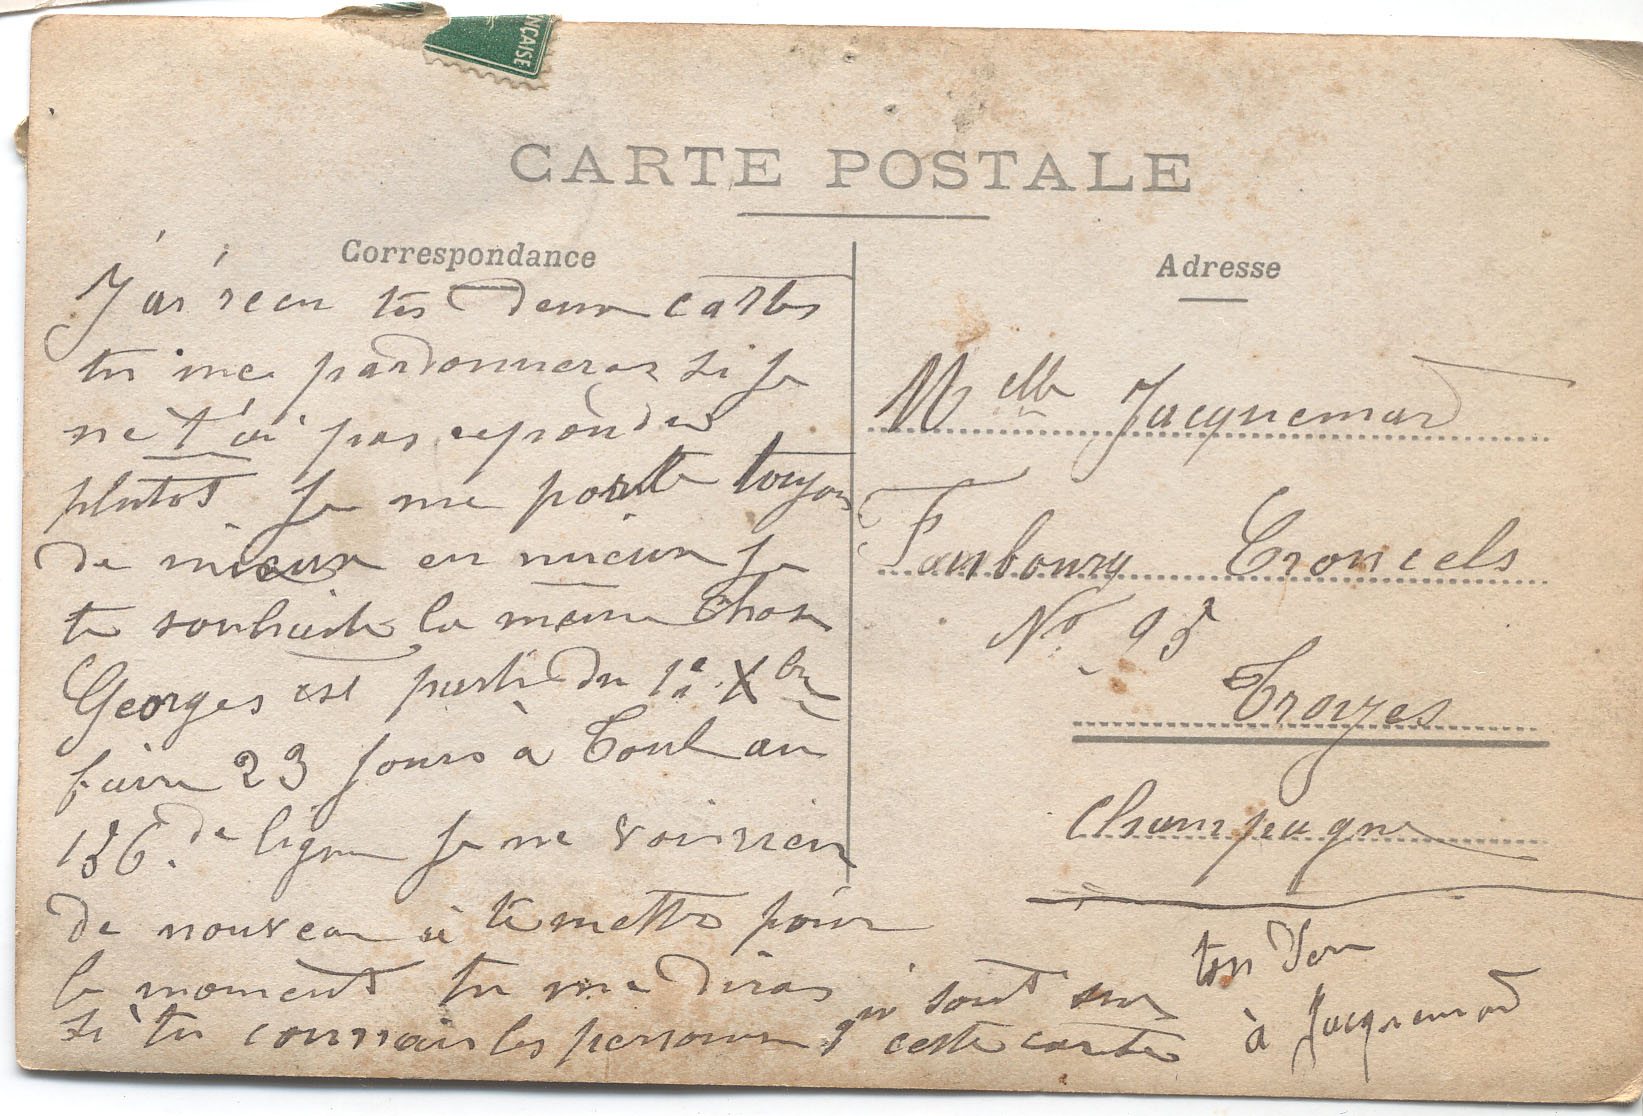 NÇAISE
CARTE POSTALE
Correspondance
J'ai recu tes deux cartes
tu me pardonneras si je
ne t'ai pas repondu
plutot Je me porte toujour
de mieux en mieux je
te souhaite la meme chose
Georges est parti du 1e Xbre
faire 23 jours à Toul au
156. de ligne je ne voi rien
de nouveau à te mettre pour
le moment tu me diras
si tu connais les personnes qui sont sur
cette carte
Adresse
Melle Jacquemard
Faubourg Croncels
No. 95
Troyes
Champagne
ton
à Jacquemard